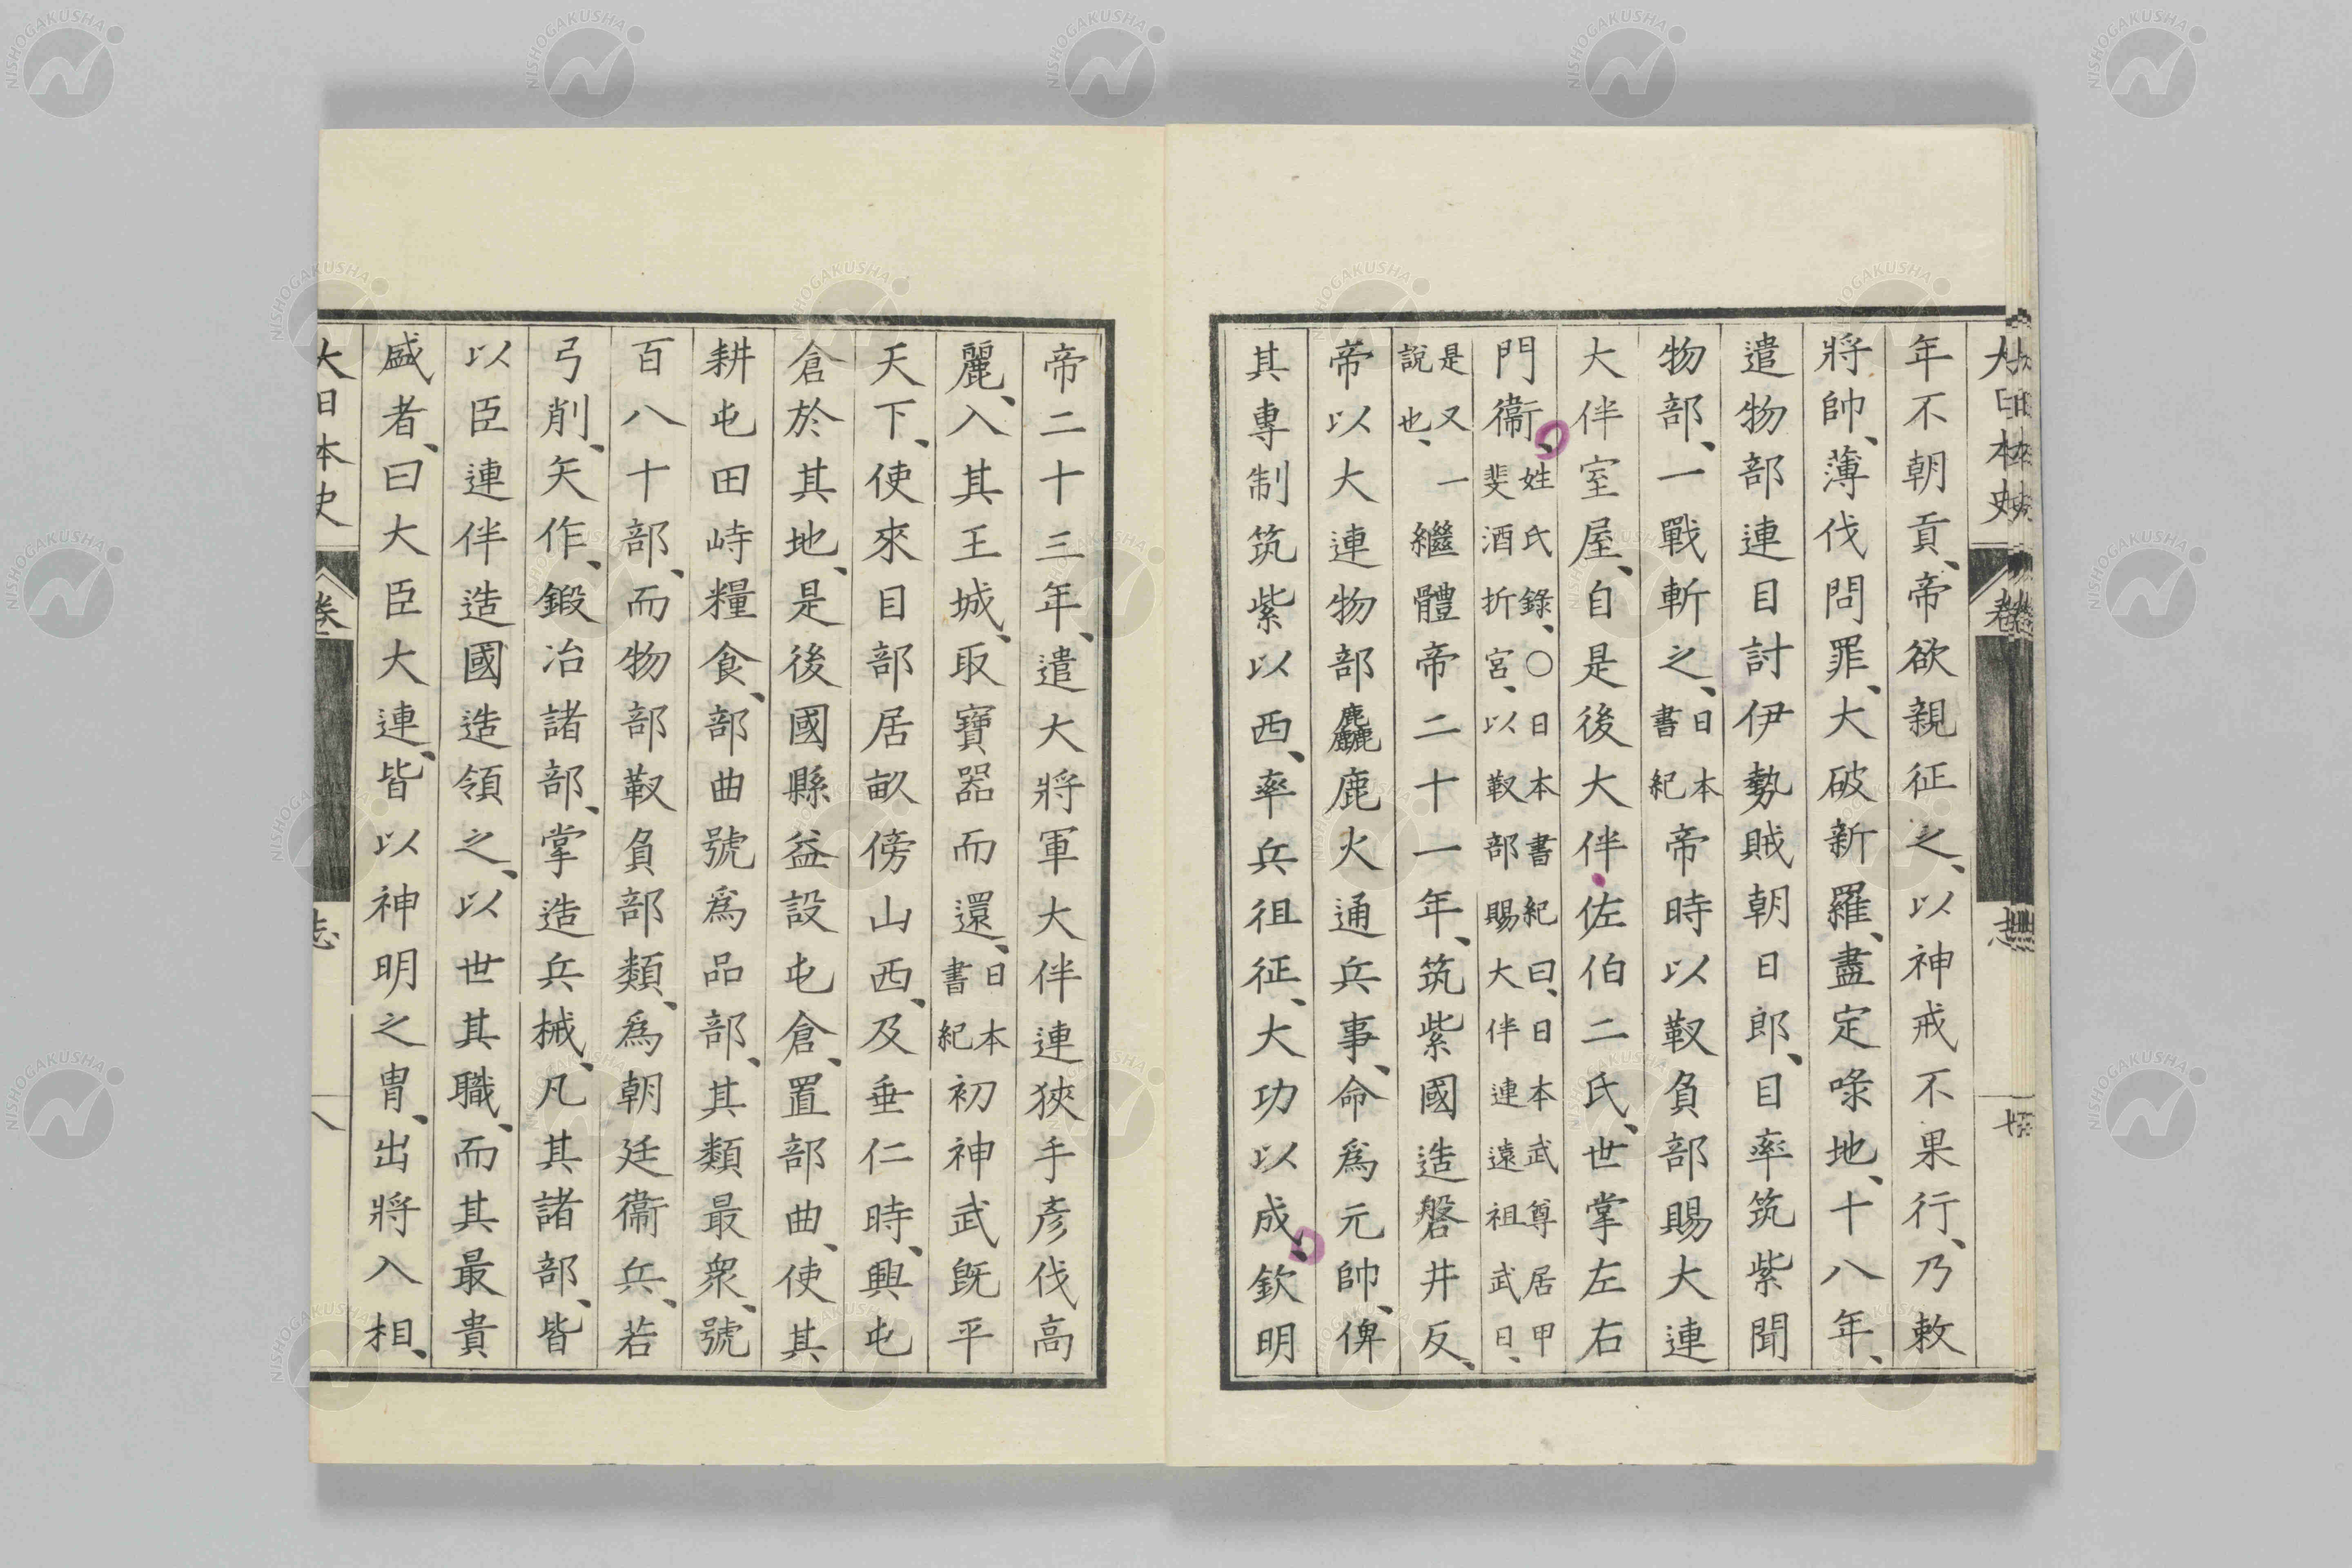 年不朝貢、帝欲親征之、以神戒不果行、乃敕
將帥、薄伐問罪、大破新羅、盡定㖨地、十八年、
遣物部連目討伊勢賊朝日郎、目率筑紫聞
物部、一戰斬之、日本書紀帝時以靫負部賜大連
大伴室屋、自是後大伴佐伯二氏、世掌左右
門衞、姓氏錄、○日本書紀曰、日本武尊居甲斐酒折宮、以靫部賜大伴連遠祖武日、
是又一說也、繼體帝二十一年、筑紫國造磐井反、
帝以大連物部麤鹿火通兵事、命爲元帥、俾
其專制筑紫以西、率兵徂征、大功以成、欽明
帝二十三年、遣大將軍大伴連狹手彥伐高
麗、入其王城、取寶器而還、日本書紀初神武旣平
天下、使來目部居畝傍山西、及垂仁時、興屯
倉於其地、是後國縣益設屯倉、置部曲、使其
耕屯田峙糧食、部曲號爲品部、其類最衆、號
百八十部、而物部靫負部類、爲朝廷衞兵、若
弓削、矢作、鍛冶諸部、掌造兵械、凡其諸部、皆
以臣連伴造國造領之、以世其職、而其最貴
盛者、曰大臣大連、皆以神明之冑、出將入相、
大日本史
卷
志
八